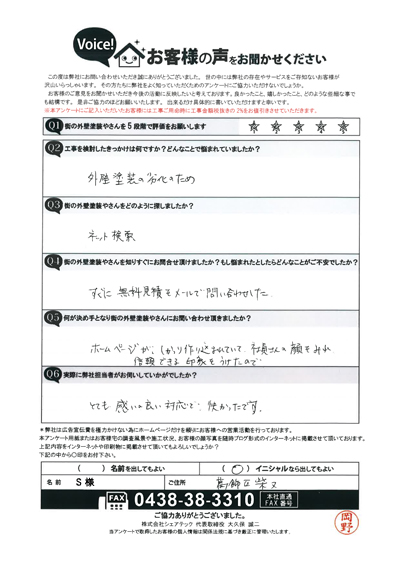 Voice!
お客様の声をお聞かせください
この度は弊社にお問い合わせいただき誠にありがとうございました。 世の中には弊社の存在やサービスをご存知ないお客様が
沢山いらっしゃいます。 その方たちに弊社をよく知っていただくためのアンケートにご協力いただけないでしょうか。
お客様のご意見をお聞かせいただき今後の活動に反映したいと考えております。良かったこと、嬉しかったこと、どのような些細な事で
も結構です。 是非ご協力のほどお願いいたします。 出来るだけ具体的に書いていただけますと幸いです。
※本アンケートにご記入いただいたお客様には工事ご用命時に工事金額税抜きの 2%をお値引きさせていただきます。
Q1 街の外壁塗装やさんを 5 段階で評価をお願いします
Q2 工事を検討したきっかけは何ですか？どんなことで悩まれていましたか？
外壁塗装の劣化のため
Q3 街の外壁塗装やさんをどのように探しましたか？
ネット検索
Q4 街の外壁塗装やさんを知りすぐにお問合せ頂けましたか？もし悩まれたとしたらどんなことがご不安でしたか？
すぐに 無料見積をメールで問い合わせした
Q5 何が決め手となり街の外壁塗装やさんにお問い合わせ頂きましたか？
ホームページが、しっかり作り込まれていて
信頼できる 印象をうけたので
Q6 実際に弊社担当者がお伺いしていかがでしたか？
とても 感じの良い対応で、快かったです。
＊弊社は広告宣伝費を極力かけない為にホームページだけを頼りにお客様への営業活動を行っております。
本アンケート用紙またはお客様宅の調査風景や施工状況、お客様の顔写真を随時ブログ形式のインターネットに掲載させて頂いております。
上記内容をインターネットや印刷物に掲載させて頂いてもよろしいでしょうか？
下記の中から〇印をお付下さい。
( ) 名前を出してもよい ( 〇 ) イニシャルなら出してもよい
名 前 S 様 ご住所 葛飾区柴又
FAX 0438-38-3310 本社直通 FAX番号
ご協力ありがとうございました。
株式会社シェアテック 代表取締役 大久保 誠二
当アンケートで取得したお客様の個人情報は関係法規に基づき厳正に管理いたします。
岡野